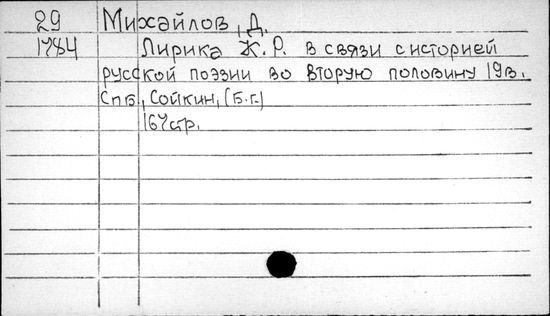 29 Михайлов, Д.
1784 Лирика К. Р. в связи с историей
русской поэзии во вторую половину 19 в.
Спб., Сойкин, (б.г.)
164 стр.